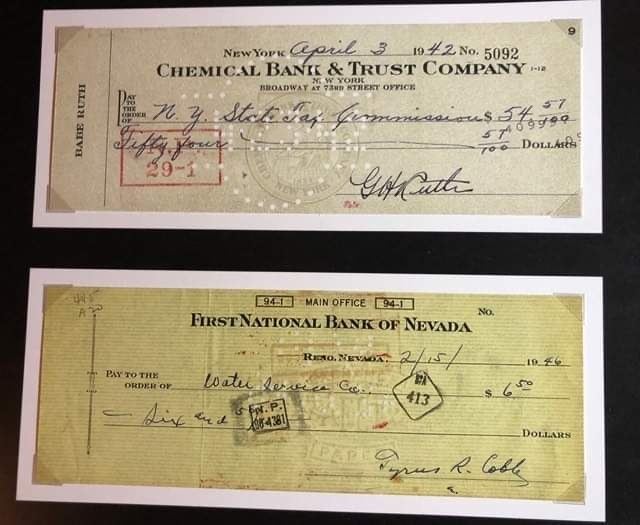 9
New York April 3 1942 No. 5092
Chemical Bank & Trust Company 1-12
NEW YORK
BROADWAY AT 73RD STREET OFFICE
BABE RUTH
PAY TO THE ORDER OF N. Y. State Tax Commission $ 54 57/100
Fifty four 57/100 Dollars
29-1
NEW YORK
G H Ruth
94-1 MAIN OFFICE 94-1
No.
First National Bank of Nevada
Reno, Nevada, 2/15/ 1946
Pay to the order of Water Service Co. $ 6 50
413
Six and
Dollars
Tyrus R. Cobb